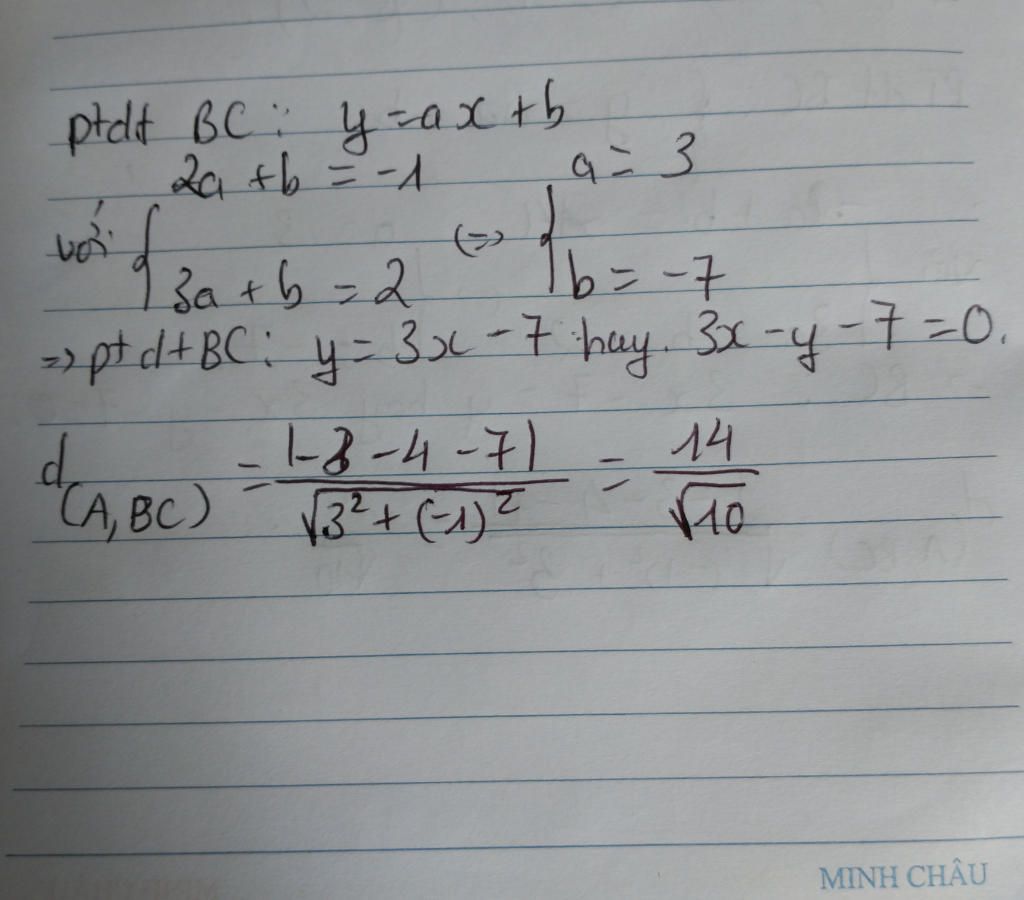 ptdt BC: y = ax + b
2a + b = -1 a = 3
với { <=> {
3a + b = 2 b = -7
=> ptdt BC: y = 3x - 7 hay. 3x - y - 7 = 0.
d(A, BC) = |-3 - 4 - 7| / √3² + (-1)² = 14 / √10
MINH CHÂU